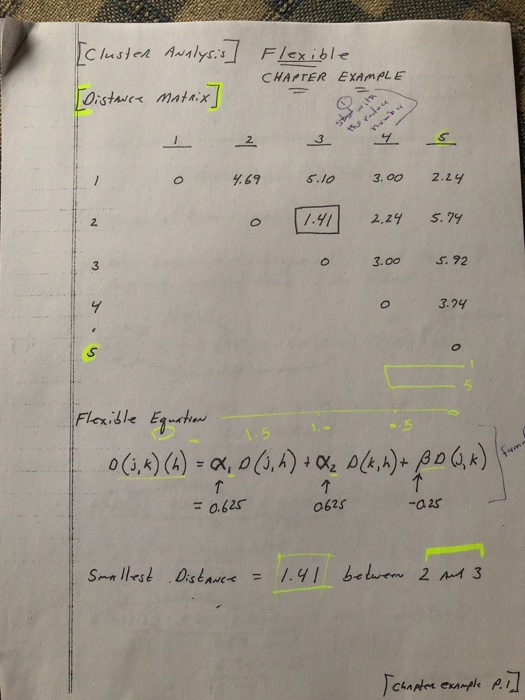 [Cluster Analysis] Flexible
CHAPTER EXAMPLE
[Distance Matrix]
① start with
the
number
1 2 3 4 5
1 0 4.69 5.10 3.00 2.24
2 0 1.41 2.24 5.74
3 0 3.00 5.92
4 0 3.74
5 0
1
5
Flexible Equation
1.5 1.- .5 0
D(j,k)(h) = α₁ D(j,h) + α₂ D(k,h) + βD(j,k)
= 0.625 0.625 -0.25
Smallest Distance = 1.41 between 2 and 3
[chapter example P.1]